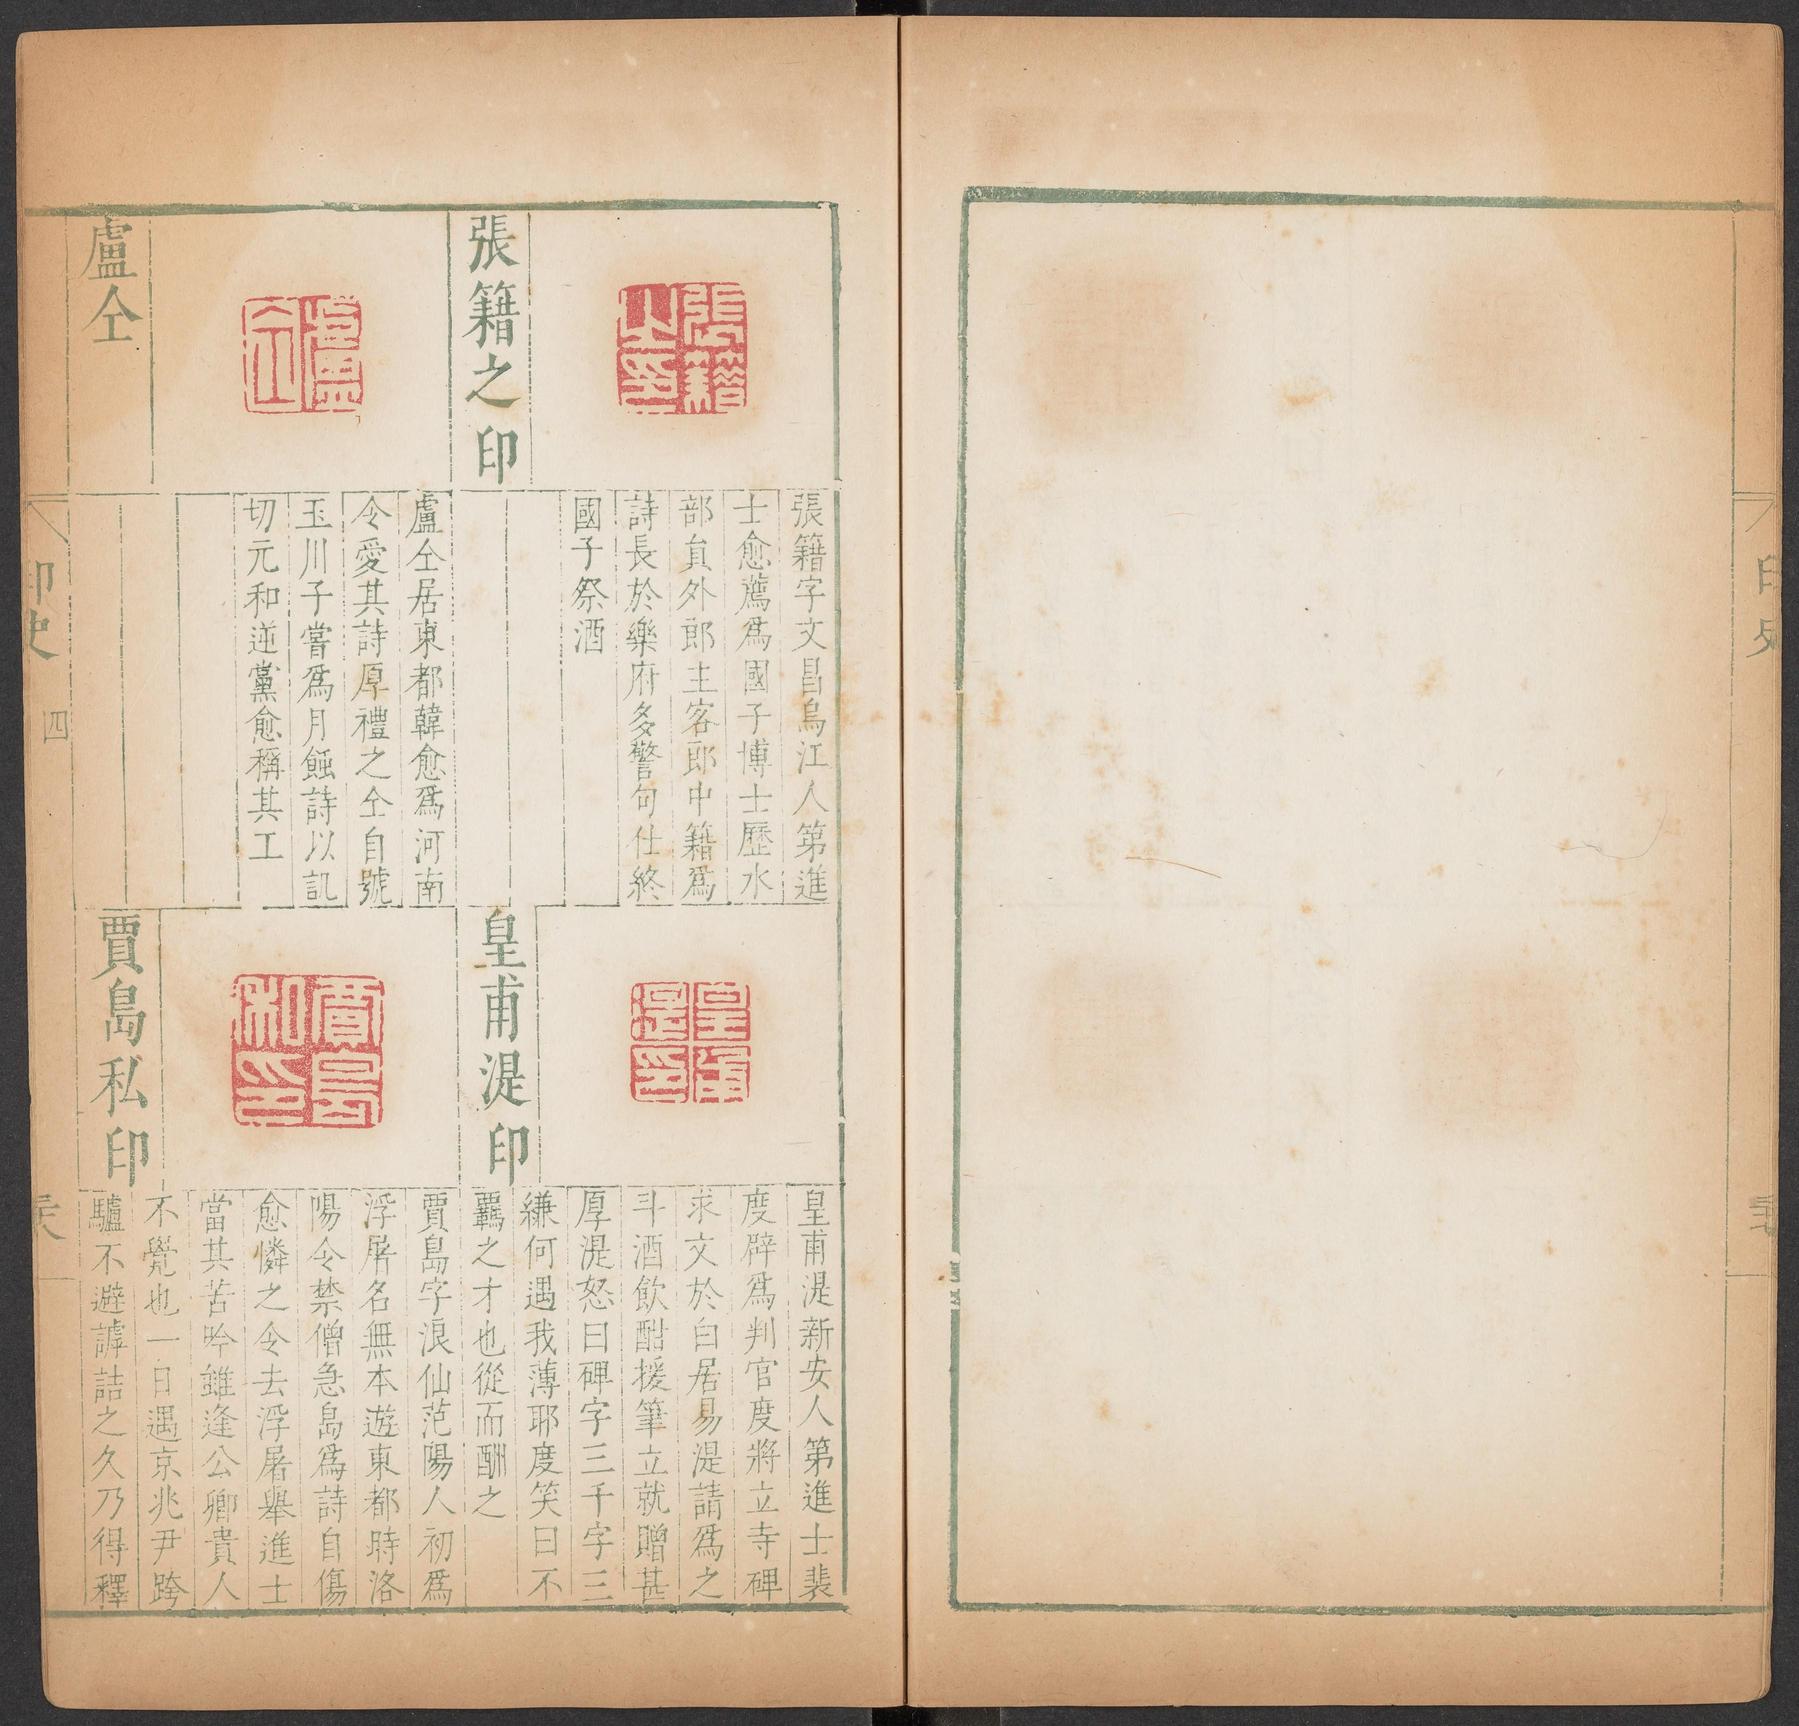 印史
張籍之印
張籍之印
張籍字文昌烏江人第進
士愈薦爲國子博士歷水
部員外郎主客郎中籍爲
詩長於樂府多警句仕終
國子祭酒
皇甫湜印
皇甫湜印
皇甫湜新安人第進士裴
度辟爲判官度將立寺碑
求文於白居易湜請爲之
斗酒飲酣援筆立就贈甚
厚湜怒曰碑字三千字三
縑何遇我薄耶度笑曰不
羈之才也從而酬之
盧仝
盧仝
盧仝居東都韓愈爲河南
令愛其詩厚禮之仝自號
玉川子嘗爲月蝕詩以譏
切元和逆黨愈稱其工
賈島私印
賈島私印
賈島字浪仙范陽人初爲
浮屠名無本遊東都時洛
陽令禁僧急島爲詩自傷
愈憐之令去浮屠舉進士
當其苦吟雖逢公卿貴人
不覺也一日遇京兆尹跨
驢不避謼詰之久乃得釋
印史
四